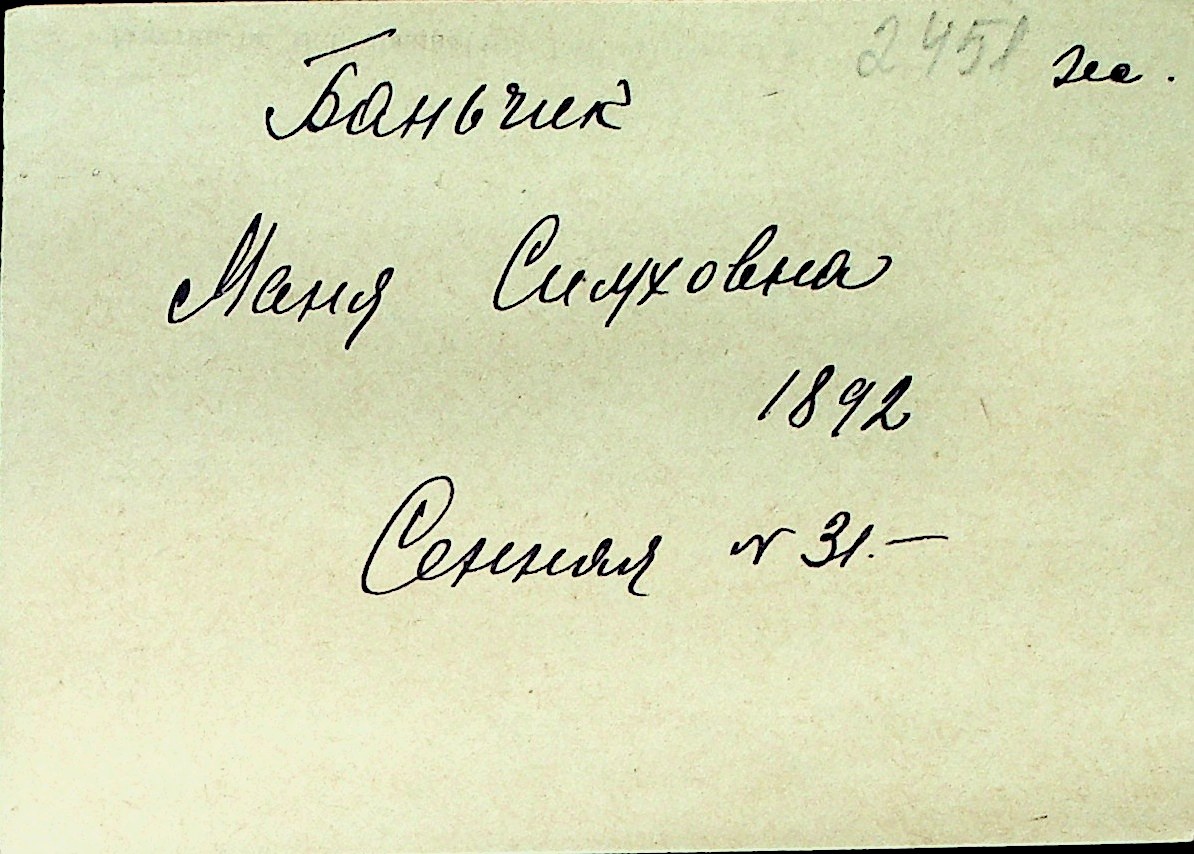 2451
Баньчик
Маня Симховна
1892
Сенная N 31.—